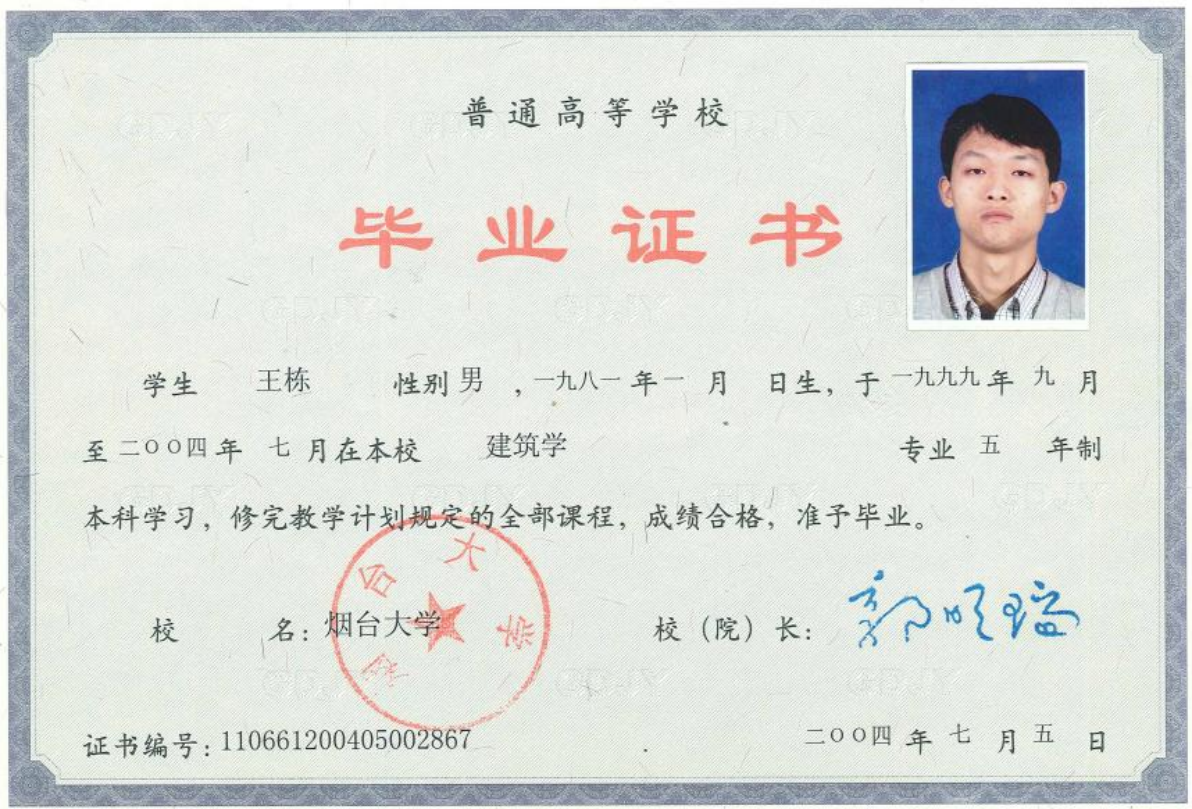 普通高等学校
毕业证书
学生 王栋 性别 男 ，一九八一 年 一 月 日生，于 一九九九 年 九 月
至 二〇〇四 年 七 月在本校 建筑学 专业 五 年制
本科学习，修完教学计划规定的全部课程，成绩合格，准予毕业。
校 名：烟台大学 校（院）长：郭明瑞
烟台大学
证书编号：110661200405002867 二〇〇四 年 七 月 五 日